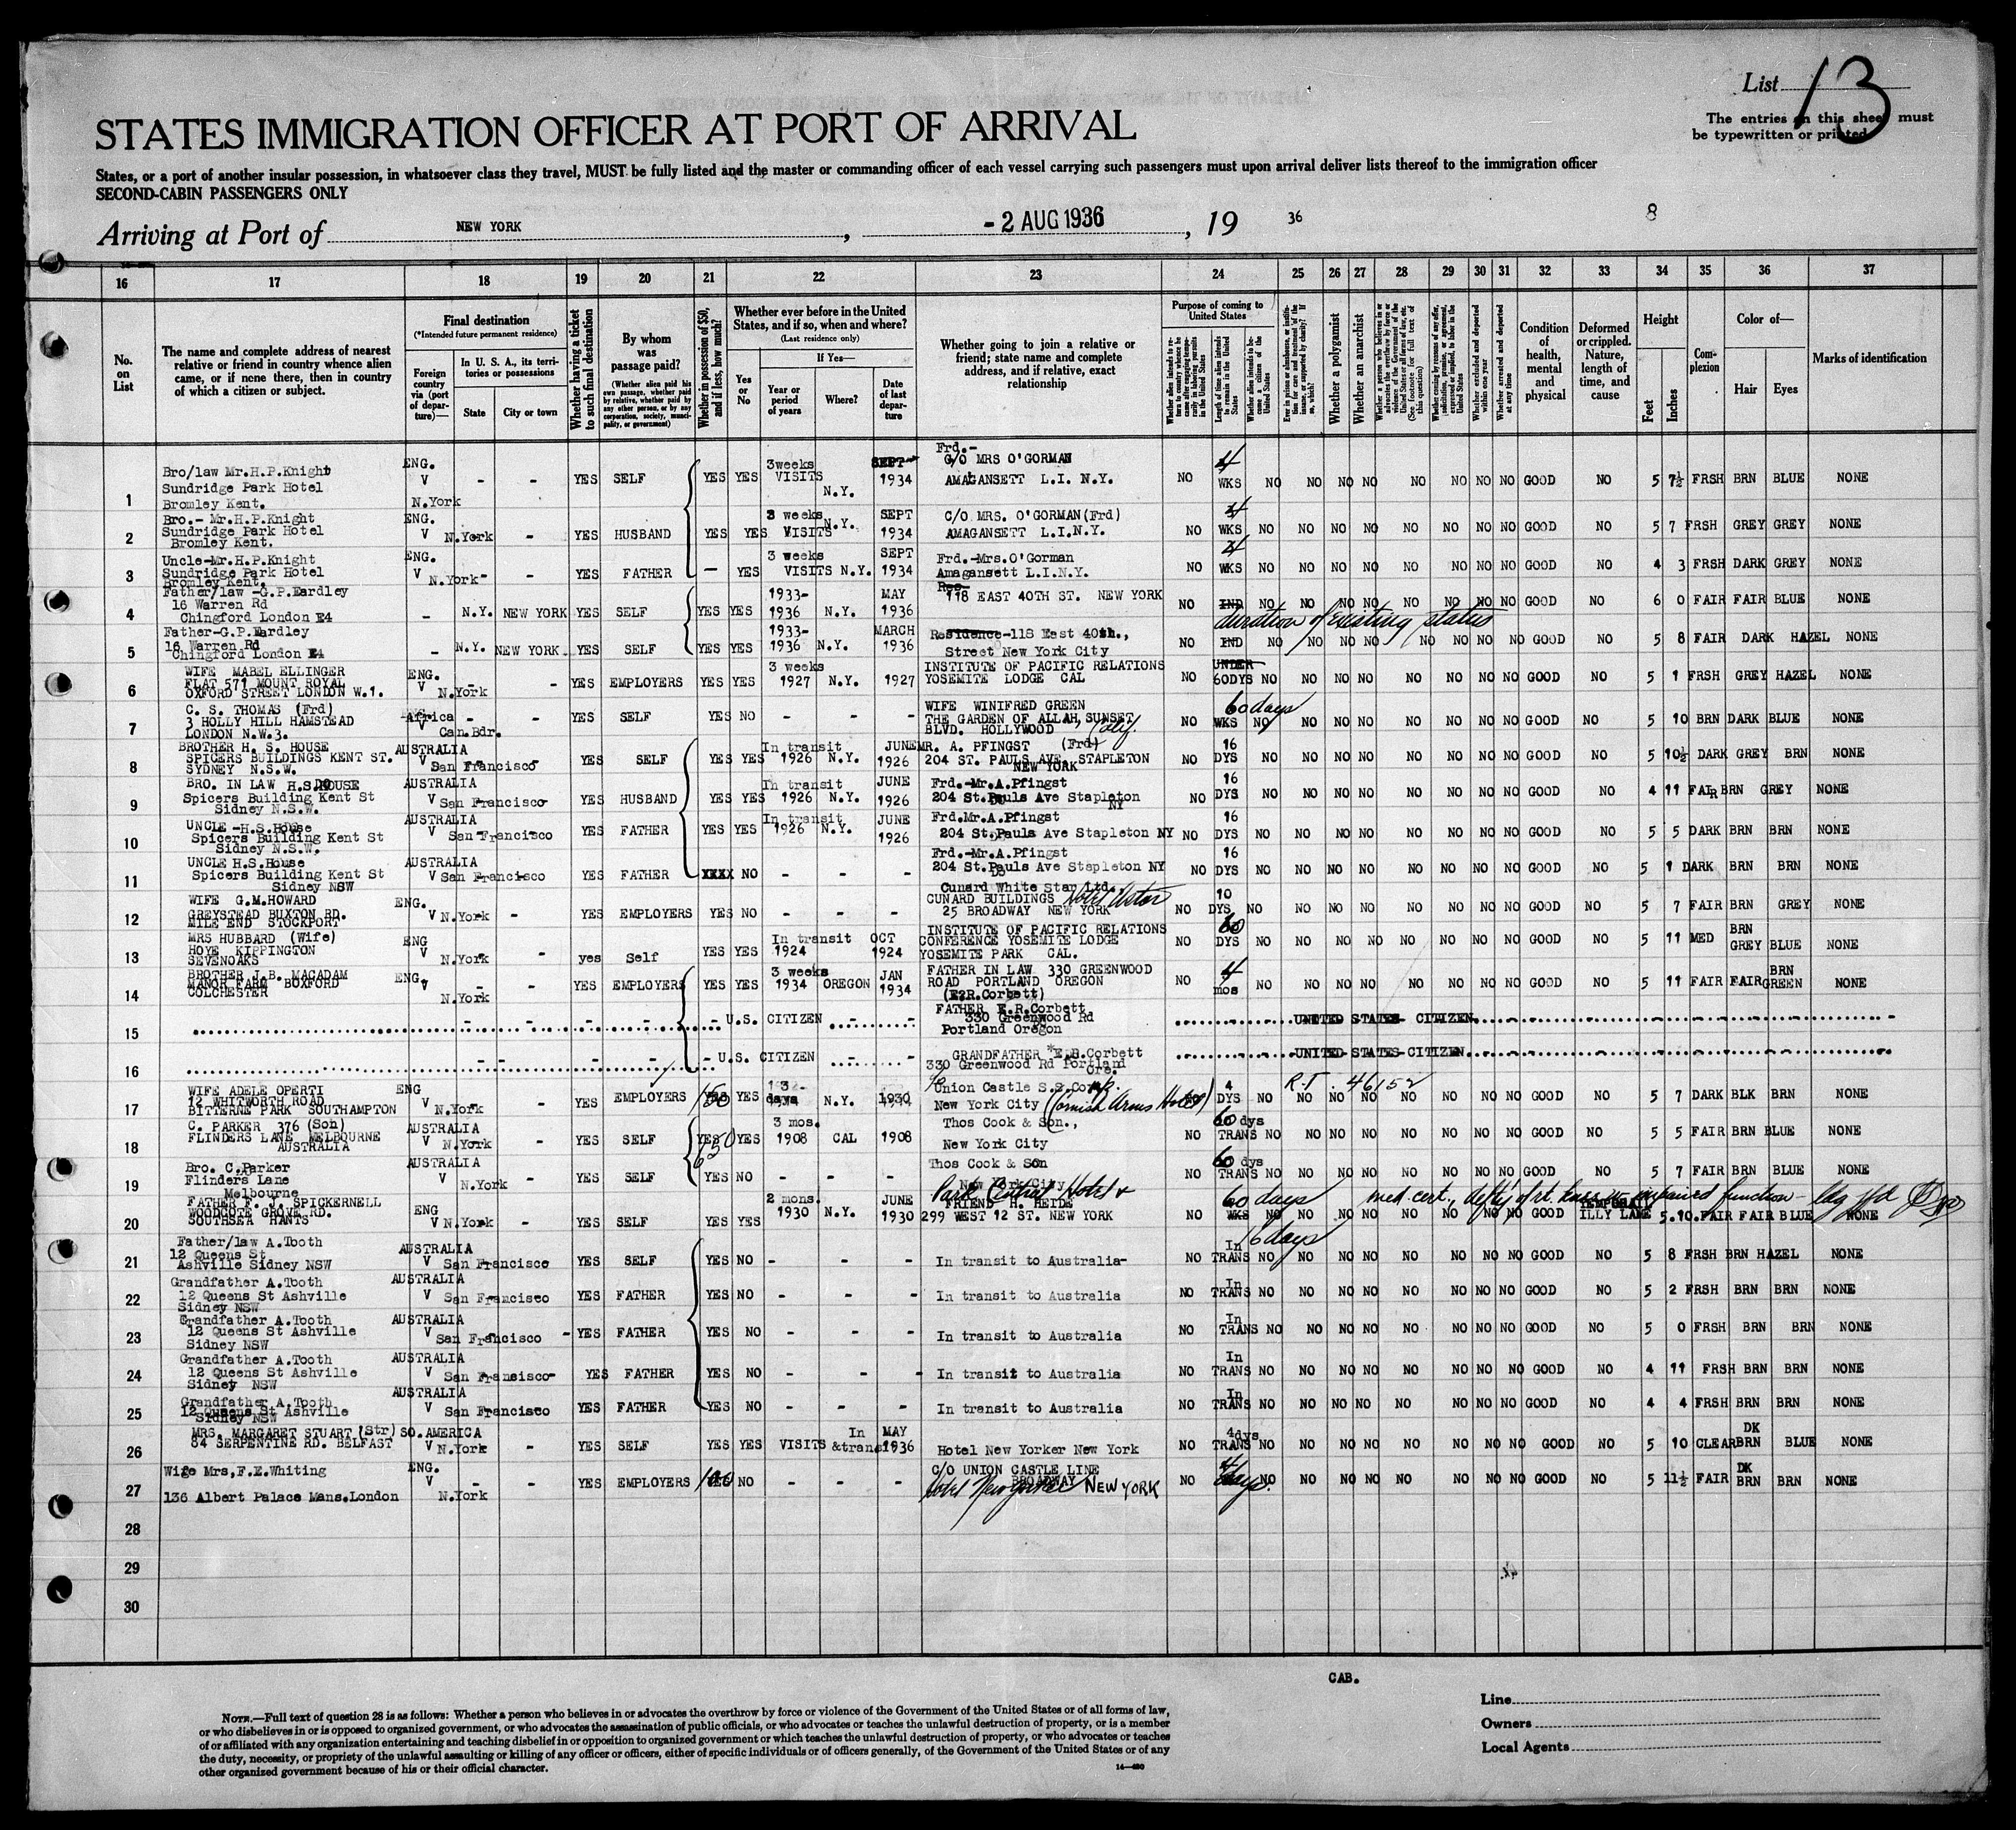 List 13
The entries on this sheet must
be typewritten or printed
STATES IMMIGRATION OFFICER AT PORT OF ARRIVAL
States, or a port of another insular possession, in whatsoever class they travel, MUST be fully listed and the master or commanding officer of each vessel carrying such passengers must upon arrival deliver lists thereof to the immigration officer
SECOND-CABIN PASSENGERS ONLY
Arriving at Port of NEW YORK, - 2 AUG 1936, 19 36
8
16 17 18 19 20 21 22 23 24 25 26 27 28 29 30 31 32 33 34 35 36 37
No. on List
The name and complete address of nearest relative or friend in country whence alien came, or if none there, then in country of which a citizen or subject.
Final destination
(*Intended future permanent residence)
Foreign country via (port of departure)—
In U. S. A., its territories or possessions
State
City or town
Whether having a ticket to such final destination
By whom was passage paid?
(Whether alien paid his own passage, whether paid by relative, whether paid by any other person, or by any corporation, society, municipality, or government)
Whether in possession of $50, and if less, how much?
Whether ever before in the United States, and if so, when and where?
(Last residence only)
Yes or No
If Yes—
Year or period of years
Where?
Date of last departure
Whether going to join a relative or friend; state name and complete address, and if relative, exact relationship
Purpose of coming to United States
Length of time alien intends to remain in the United States
Whether alien intends to become a citizen of the United States
Whether a polygamist
Whether an anarchist
Whether excluded and deported within one year
Whether arrested and deported at any time
Condition of health, mental and physical
Deformed or crippled. Nature, length of time, and cause
Height
Feet
Inches
Complexion
Color of—
Hair
Eyes
Marks of identification
1 Bro/law Mr.H.P.Knight Sundridge Park Hotel Bromley Kent. ENG. V N.York - - YES SELF YES YES 3weeks VISITS N.Y. SEPT 1934 Frd.- C/O MRS O'GORMAN AMAGANSETT L.I. N.Y. NO 4 WKS NO NO NO NO NO NO NO NO GOOD NO 5 7½ FRSH BRN BLUE NONE
2 Bro.- Mr.H.P.Knight Sundridge Park Hotel Bromley Kent. ENG. V N.York - YES HUSBAND YES YES 3 weeks VISITS N.Y. SEPT 1934 C/O MRS. O'GORMAN(Frd) AMAGANSETT L.I.N.Y. NO 4 WKS NO NO NO NO NO NO NO NO GOOD NO 5 7 FRSH GREY GREY NONE
3 Uncle-Mr.H.P.Knight Sundridge Park Hotel Bromley Kent. ENG. V N.York- - YES FATHER — YES 3 weeks VISITS N.Y. SEPT 1934 Frd.-Mrs.O'Gorman Amagansett L.I.N.Y. NO 4 WKS NO NO NO NO NO NO NO NO GOOD NO 4 3 FRSH DARK GREY NONE
4 Father/law -G.P.Eardley 16 Warren Rd Chingford London E4 - N.Y. NEW YORK YES SELF YES YES 1933- 1936 N.Y. MAY 1936 118 EAST 40TH ST. NEW YORK NO IND NO NO NO NO NO NO NO NO GOOD NO 6 0 FAIR FAIR BLUE NONE
duration of existing status
5 Father-G.P.Eardley 16 Warren Rd Chingford London E4 - N.Y. NEW YORK YES SELF YES YES 1933- 1936 N.Y. MARCH 1936 Residence-118 East 40th., Street New York City NO IND NO NO NO NO NO NO NO NO GOOD NO 5 8 FAIR DARK HAZEL NONE
6 WIFE MABEL ELLINGER FLAT 571 MOUNT ROYAL OXFORD STREET LONDON W.1. ENG. V N.York - - YES EMPLOYERS YES YES 3 weeks 1927 N.Y. 1927 INSTITUTE OF PACIFIC RELATIONS YOSEMITE LODGE CAL NO UNDER 60DYS NO NO NO NO NO NO NO NO GOOD NO 5 1 FRSH GREY HAZEL NONE
7 C. S. THOMAS (Frd) 3 HOLLY HILL HAMSTEAD LONDON N.W.3. Africa V Can.Bdr. - - YES SELF YES NO - - - WIFE WINIFRED GREEN THE GARDEN OF ALLAH, SUNSET BLVD. HOLLYWOOD Calif. NO 60 days WKS NO NO NO NO NO NO NO NO GOOD NO 5 10 BRN DARK BLUE NONE
8 BROTHER H. S. HOUSE SPICERS BUILDINGS KENT ST. SYDNEY N.S.W. AUSTRALIA V San Francisco - YES SELF YES YES In transit 1926 N.Y. JUNE 1926 MR. A. PFINGST (Frd) 204 ST. PAULS AVE. STAPLETON NEW YORK NO 16 DYS NO NO NO NO NO NO NO NO GOOD NO 5 10½ DARK GREY BRN NONE
9 BRO. IN LAW H.S.HOUSE Spicers Building Kent St Sidney N.S.W. AUSTRALIA V San Francisco- YES HUSBAND YES YES In transit 1926 N.Y. JUNE 1926 Frd.-Mr.A.Pfingst 204 St.Pauls Ave Stapleton NY NO 16 DYS NO NO NO NO NO NO NO NO GOOD NO 4 11 FAIR BRN GREY NONE
10 UNCLE -H.S.House Spicers Building Kent St Sidney N.S.W. AUSTRALIA V San Francisco YES FATHER YES YES In transit 1926 N.Y. JUNE 1926 Frd.Mr.A.Pfingst 204 St.Pauls Ave Stapleton NY NO 16 DYS NO NO NO NO NO NO NO NO GOOD NO 5 5 DARK BRN BRN NONE
11 UNCLE H.S.House Spicers Building Kent St Sidney NSW AUSTRALIA V San Francisco YES FATHER XXXX NO - - - Frd.-Mr.A.Pfingst 204 St.Pauls Ave Stapleton NY NO 16 DYS NO NO NO NO NO NO NO NO GOOD NO 5 1 DARK BRN BRN NONE
12 WIFE G.M.HOWARD GREYSTEAD BUXTON RD. MILE END STOCKPORT ENG. V N.York - - YES EMPLOYERS YES NO - - - Cunard White Star Ltd. CUNARD BUILDINGS Hotel Astor 25 BROADWAY NEW YORK NO 10 DYS NO NO NO NO NO NO NO NO GOOD NO 5 7 FAIR BRN GREY NONE
13 MRS HUBBARD (Wife) HOYE KIPPINGTON SEVENOAKS ENG V N.York - - yes Self YES YES In transit 1924 OCT 1924 INSTITUTE OF PACIFIC RELATIONS CONFERENCE YOSEMITE LODGE YOSEMITE PARK CAL. NO 60 DYS NO NO NO NO NO NO NO NO GOOD NO 5 11 MED BRN GREY BLUE NONE
14 BROTHER J.B. MACADAM MANOR FARM BOXFORD COLCHESTER ENG. V N.York - - YES EMPLOYERS YES YES 3 weeks 1934 OREGON JAN 1934 FATHER IN LAW 330 GREENWOOD ROAD PORTLAND OREGON (E.R.Corbett) NO 4 mos NO NO NO NO NO NO NO NO GOOD NO 5 11 FAIR FAIR BRN GREEN NONE
15 - - - - - U.S. CITIZEN - - FATHER E.R.Corbett 330 Greenwood Rd Portland Oregon UNITED STATES CITIZEN
16 - - - - - U.S. CITIZEN - - GRANDFATHER E.R.Corbett 330 Greenwood Rd Portland Ore. UNITED STATES CITIZEN
17 WIFE ADELE OPERTI 12 WHITWORTH ROAD BITTERNE PARK SOUTHAMPTON ENG V N.York - - YES EMPLOYERS YES 150 YES 3 days N.Y. 1930 c/o Union Castle S.S.Corp. New York City (Cornish Arms Hotel) 4 DYS NO R.T. 46152 NO NO NO NO NO NO NO GOOD NO 5 7 DARK BLK BRN NONE
18 C. PARKER 376 (Son) FLINDERS LANE MELBOURNE AUSTRALIA AUSTRALIA V N.York - YES SELF YES YES 3 mos. 1908 CAL 1908 Thos Cook & Son., New York City NO 60 dys TRANS NO NO NO NO NO NO NO NO GOOD NO 5 5 FAIR BRN BLUE NONE
19 Bro. C.Parker Flinders Lane Melbourne AUSTRALIA V N.York - YES SELF YES NO - - - Thos Cook & Son New York City NO 60 dys TRANS NO NO NO NO NO NO NO NO GOOD NO 5 7 FAIR BRN BLUE NONE
20 FATHER F. J. SPICKERNELL WOODCOTE GROVE RD. SOUTHSEA HANTS ENG V N.York - - YES SELF YES YES 2 mons. 1930 N.Y. JUNE 1930 Park Central Hotel + FRIEND H. HEIDE 299 WEST 12 ST. NEW YORK NO 60 days WKS NO NO NO NO NO NO NO NO GOOD TEMPORARILLY LAME 5.10. FAIR FAIR BLUE NONE
med. cert. impaired function
21 Father/law A.Tooth 12 Queens St Ashville Sidney NSW AUSTRALIA V San Francisco YES SELF YES NO - - - In transit to Australia- NO In TRANS 16 days NO NO NO NO NO NO NO NO GOOD NO 5 8 FRSH BRN HAZEL NONE
22 Grandfather A.Tooth 12 Queens St Ashville Sidney NSW AUSTRALIA V San Francisco YES FATHER YES NO - - - In transit to Australia NO In TRANS NO NO NO NO NO NO NO NO GOOD NO 5 2 FRSH BRN BRN NONE
23 Grandfather A.Tooth 12 Queens St Ashville Sidney NSW AUSTRALIA V San Francisco - YES FATHER YES NO - - - In transit to Australia NO In TRANS NO NO NO NO NO NO NO NO GOOD NO 5 0 FRSH BRN BRN NONE
24 Grandfather A.Tooth 12 Queens St Ashville Sidney NSW AUSTRALIA V San Francisco- YES FATHER YES NO - - - In transit to Australia NO In TRANS NO NO NO NO NO NO NO NO GOOD NO 4 11 FRSH BRN BRN NONE
25 Grandfather A.Tooth 12 Queens St Ashville Sidney NSW AUSTRALIA V San Francisco YES FATHER YES NO - - - In transit to Australia NO In TRANS NO NO NO NO NO NO NO NO GOOD NO 4 4 FRSH BRN BRN NONE
26 MRS. MARGARET STUART (Str) 84 SERPENTINE RD. BELFAST SO.AMERICA V N.York - YES SELF YES YES VISITS In &transit MAY 1936 Hotel New Yorker New York NO 4dys TRANS NO NO NO NO NO NO NO NO GOOD NO 5 10 CLEAR DK BRN BLUE NONE
27 Wife Mrs,F.E.Whiting 136 Albert Palace Mans.London ENG. V N.York - - YES EMPLOYERS 100 NO - - - C/O UNION CASTLE LINE BROADWAY Hotel New Yorker NEW YORK NO 4 days. NO NO NO NO NO NO NO NO GOOD NO 5 11½ FAIR DK BRN BRN NONE
28
29
30
CAB.
Line
Owners
Local Agents
NOTE.—Full text of question 28 is as follows: Whether a person who believes in or advocates the overthrow by force or violence of the Government of the United States or of all forms of law,
or who disbelieves in or is opposed to organized government, or who advocates the assassination of public officials, or who advocates or teaches the unlawful destruction of property, or is a member
of or affiliated with any organization entertaining and teaching disbelief in or opposition to organized government or which teaches the unlawful destruction of property, or who advocates or teaches
the duty, necessity, or propriety of the unlawful assaulting or killing of any officer or officers, either of specific individuals or of officers generally, of the Government of the United States or of any
other organized government because of his or their official character.
14—480